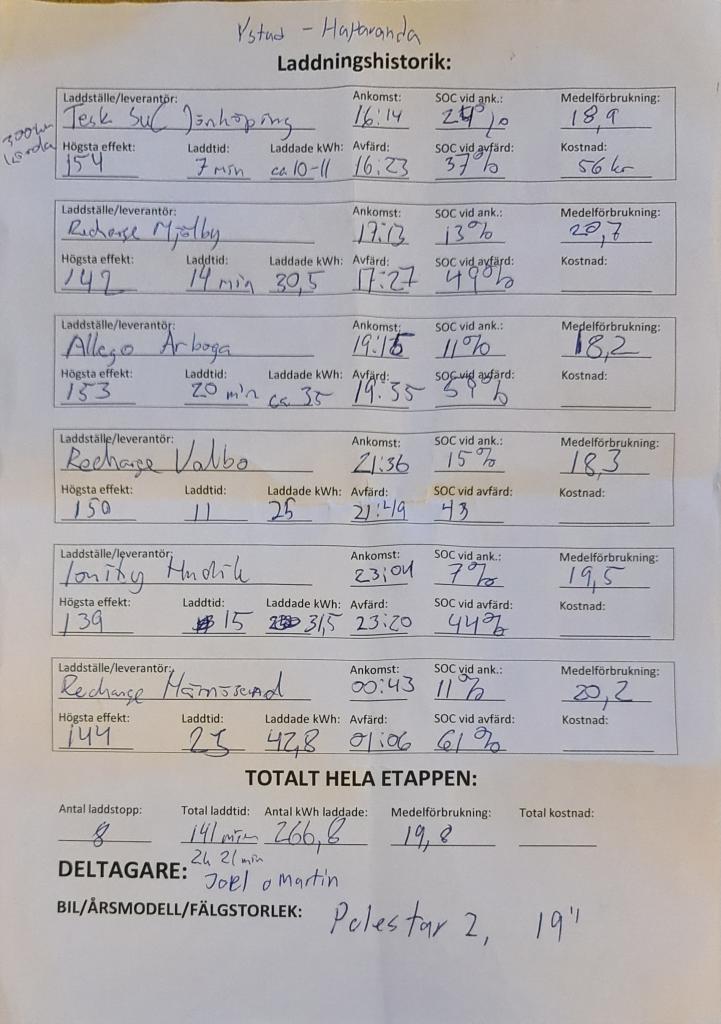 Ystad - Haparanda
Laddningshistorik:
Laddställe/leverantör: Ankomst: SOC vid ank.: Medelförbrukning:
Tesla SuC Jönköping 16:14 % 18,9
Högsta effekt: Laddtid: Laddade kWh: Avfärd: SOC vid avfärd: Kostnad:
154 7 min ca 10-11 16:23 37% 56 kr
Laddställe/leverantör: Ankomst: SOC vid ank.: Medelförbrukning:
Recharge Mjölby 17:13 13% 20,7
Högsta effekt: Laddtid: Laddade kWh: Avfärd: SOC vid avfärd: Kostnad:
142 14 min 30,5 17:27 49%
Laddställe/leverantör: Ankomst: SOC vid ank.: Medelförbrukning:
Allego Arboga 19:15 11% 18,2
Högsta effekt: Laddtid: Laddade kWh: Avfärd: SOC vid avfärd: Kostnad:
153 20 min ca 35 19:35 %
Laddställe/leverantör: Ankomst: SOC vid ank.: Medelförbrukning:
Recharge Valbo 21:36 15% 18,3
Högsta effekt: Laddtid: Laddade kWh: Avfärd: SOC vid avfärd: Kostnad:
150 11 25 21:49 43
Laddställe/leverantör: Ankomst: SOC vid ank.: Medelförbrukning:
Ionity Hudik 23:04 7% 19,5
Högsta effekt: Laddtid: Laddade kWh: Avfärd: SOC vid avfärd: Kostnad:
139 15 31,5 23:20 44%
Laddställe/leverantör: Ankomst: SOC vid ank.: Medelförbrukning:
Recharge Härnösand 00:43 11% 20,2
Högsta effekt: Laddtid: Laddade kWh: Avfärd: SOC vid avfärd: Kostnad:
144 23 42,8 01:06 61%
TOTALT HELA ETAPPEN:
Antal laddstopp: Total laddtid: Antal kWh laddade: Medelförbrukning: Total kostnad:
8 141 min 266,8 19,8
2h 21 min
DELTAGARE: Joel o Martin
BIL/ÅRSMODELL/FÄLGSTORLEK: Polestar 2, 19"